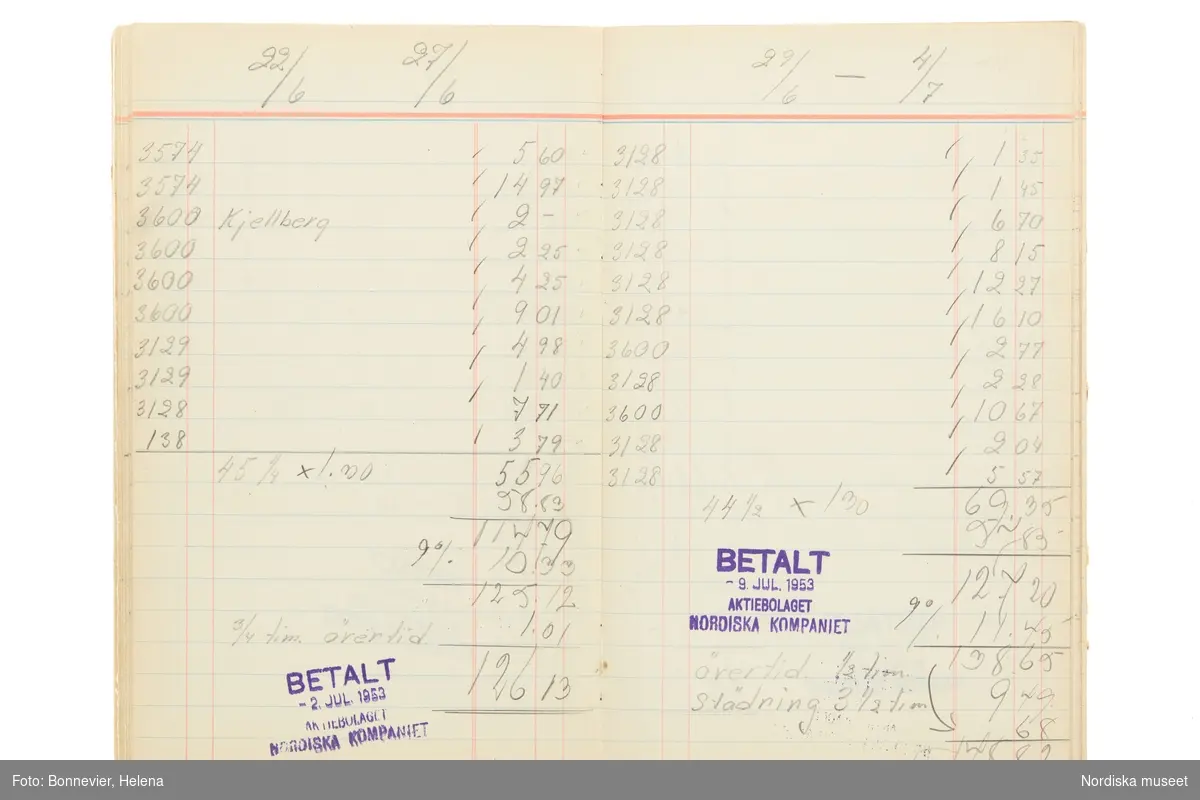 22/6 27/6
3574 5 60
3574 14 97
3600 Kjellberg 2 -
3600 2 25
3600 4 25
3600 9 01
3129 4 98
3129 1 40
3128 7 71
138 3 79
45 1/4 x 1.30 55 96
58.83
114 79
9%. 10.33
125 12
3/4 tim. övertid 1.01
126 13
BETALT
- 2. JUL. 1953
AKTIEBOLAGET
NORDISKA KOMPANIET
29/6 - 4/7
3128 1 35
3128 1 45
3128 6 70
3128 8 15
3128 12 27
3128 16 10
3600 2 77
3128 2 28
3600 10 67
3128 2 04
3128 5 57
44 1/2 x 130 69.35
57 85
127 20
9%. 11.45
138.65
övertid 1/2 tim.
städning 3 1/2 tim 9 49
68
BETALT
- 9. JUL. 1953
AKTIEBOLAGET
NORDISKA KOMPANIET
Foto: Bonnevier, Helena
Nordiska museet